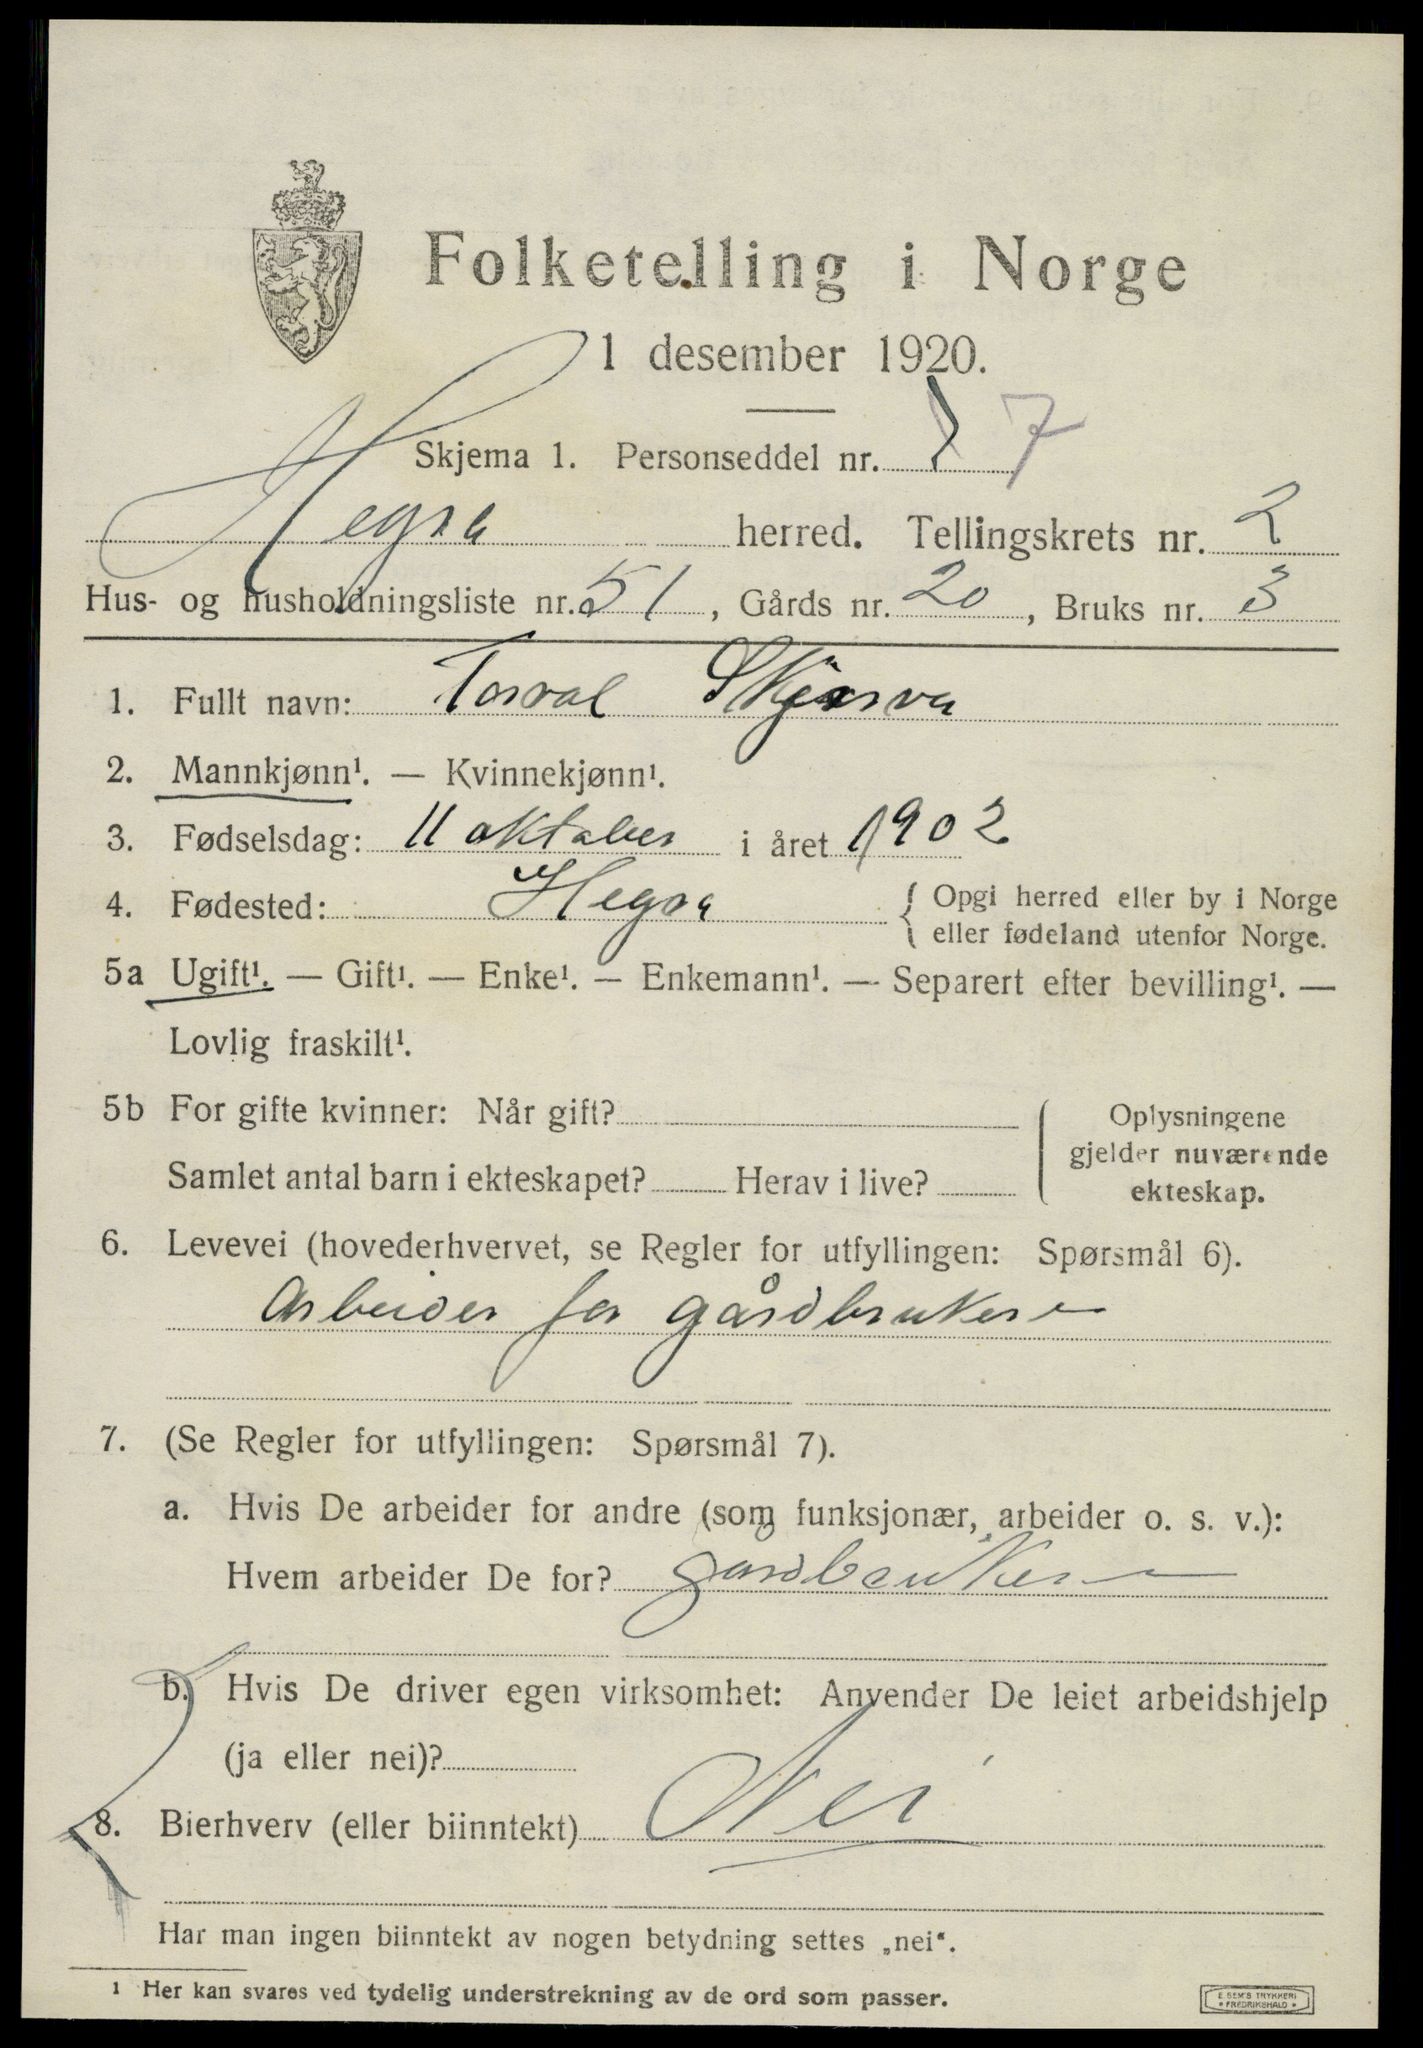 Folketelling i Norge
1 desember 1920.
Skjema 1. Personseddel nr. 7
Hegra herred. Tellingskrets nr. 2
Hus- og husholdningsliste nr. 51, Gårds nr. 20, Bruks nr. 3
1. Fullt navn: Torval Skjerva
2. Mannkjønn¹. — Kvinnekjønn¹.
3. Fødselsdag: 11 oktober i året 1902
4. Fødested: Hegra { Opgi herred eller by i Norge
eller fødeland utenfor Norge.
5a Ugift¹. — Gift¹. — Enke¹. — Enkemann¹. — Separert efter bevilling¹. —
Lovlig fraskilt¹.
5b For gifte kvinner: Når gift?
Samlet antal barn i ekteskapet? Herav i live?
Oplysningene
gjelder nuværende
ekteskap.
6. Levevei (hovederhvervet, se Regler for utfyllingen: Spørsmål 6).
Arbeider for gårdbruker
7. (Se Regler for utfyllingen: Spørsmål 7).
a. Hvis De arbeider for andre (som funksjonær, arbeider o. s. v.):
Hvem arbeider De for? gårdbruker
b. Hvis De driver egen virksomhet: Anvender De leiet arbeidshjelp
(ja eller nei)?
8. Bierhverv (eller biinntekt) Nei
Har man ingen biinntekt av nogen betydning settes „nei“.
1 Her kan svares ved tydelig understrekning av de ord som passer.
E. SEM'S TRYKKERI
FREDRIKSHALD